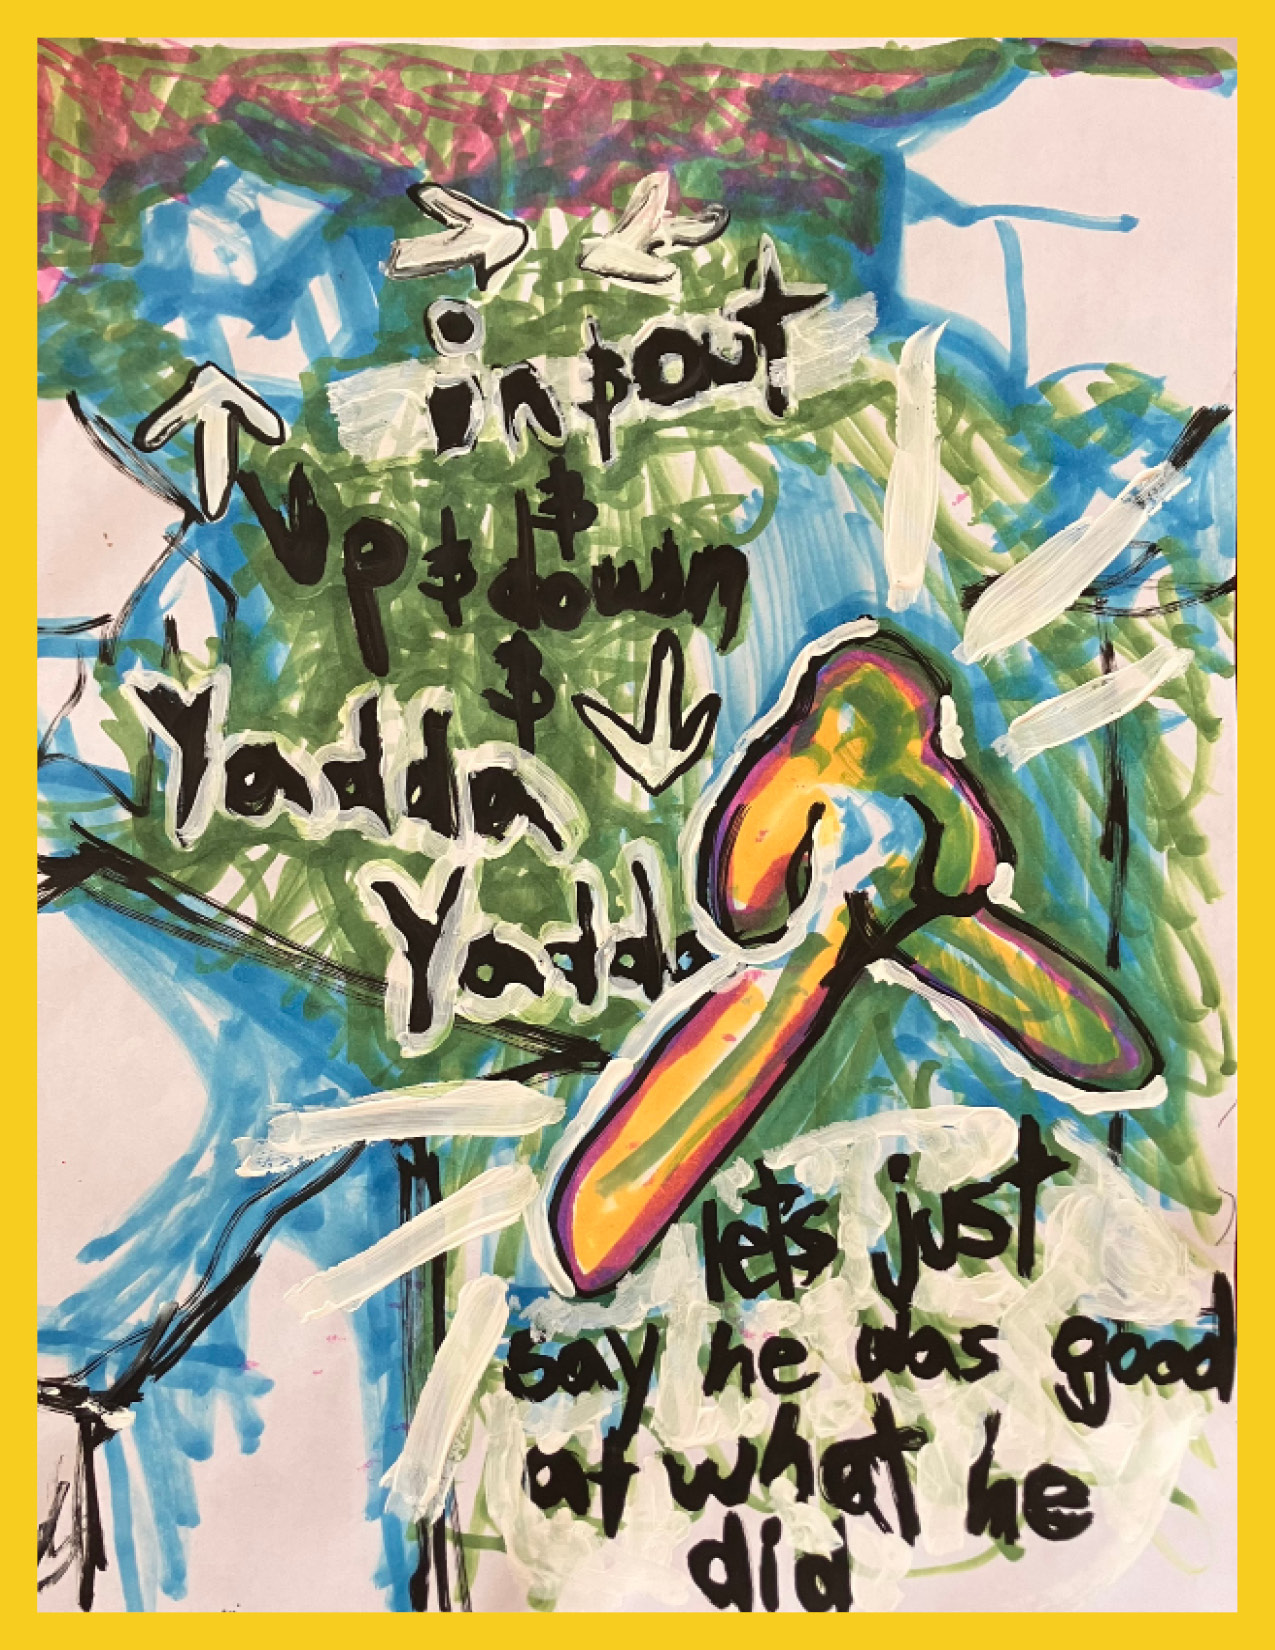 in & out
&
Up & down
&
Yadda
Yadda
lets just
say he was good
at what he
did